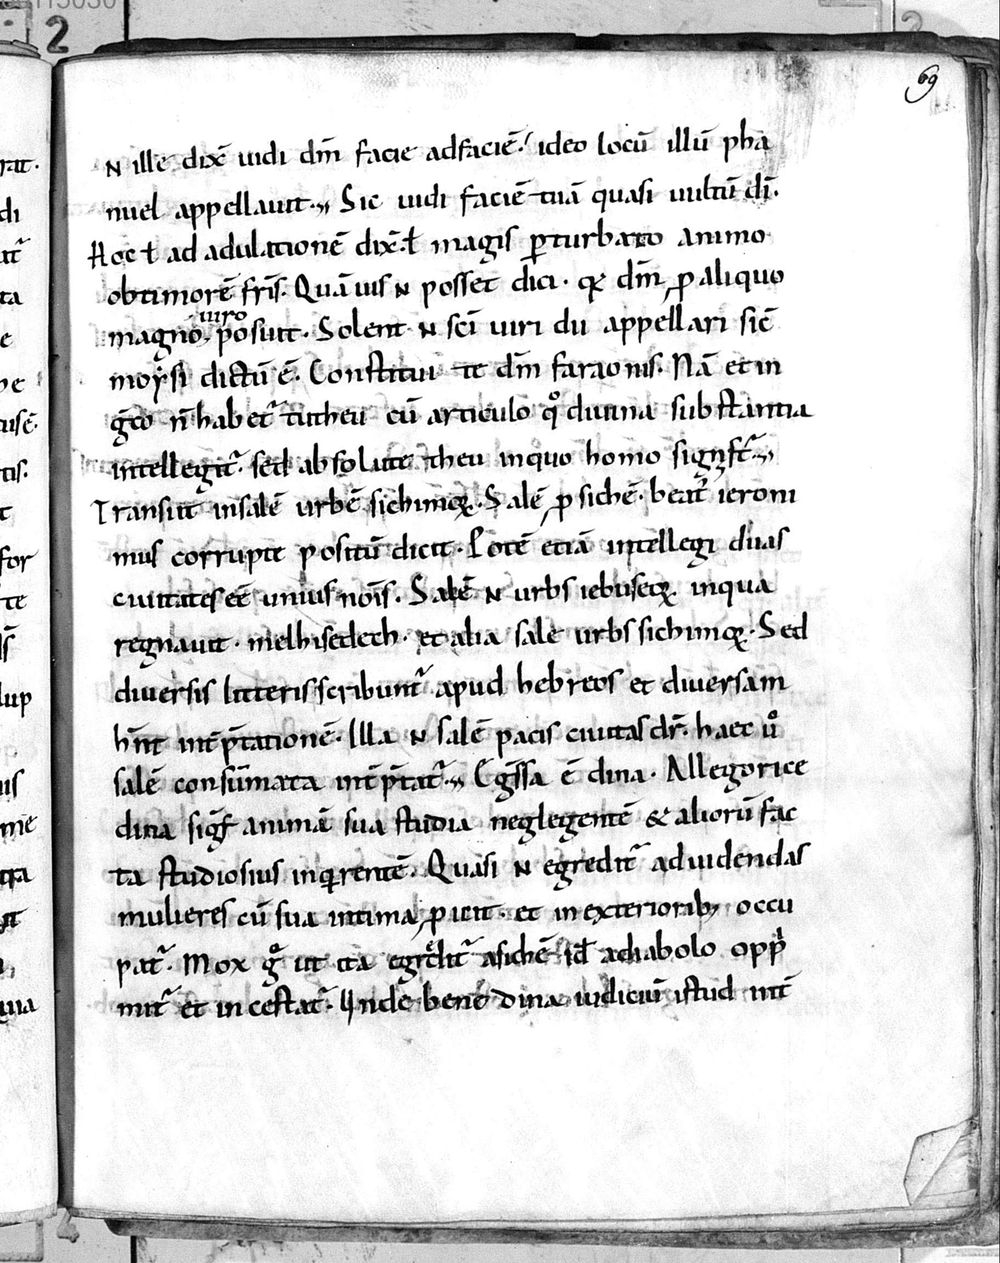 69
ɴ ille dixē uidi dm̄ facie adfaciē. ideo locū illū pha
nuel appellauit. Sic uidi faciē tuā quasi uultū dī.
Hoc ł ad adulationē dix. ł magis ꝑturbato animo
obtimorē frīs. Quāuis ɴ posset dici. dm̄, ꝓ aliquo
uiro
magno, posuit. Solent ɴ sc̄i uiri dii appellari sic̄
moysi dictū ē. Constitui te dm̄ faraonis. Nā et in
gc̄o n̄ habet᷑ tutheu cū articulo qͦ diuina substantia
intellegit᷑. sed absolute theu inquo homo
Transiit insalē urbē sichimoꝝ. Salē, ꝓ sichē. beat᷑ ieroni
mus corrupte positū dicit. Potē etiā intellegi duas
ciuitates eē unius nōis. Salē ɴ urbs iebuseoꝝ. inqua
regnauit. melhisedech. et alia salē urbs sichimoꝝ. Sed
diuersis litteris scribunt᷑ apud hebreos et diuersam
hn̄t int̄p̄tationē. Illa ɴ salē pacis ciuitas dr̄. haec uͦ
salē consūmata int̄p̄tat᷑. Egr̄ssa ē dina. Allegorice
dina sigf̄ animā sua studia neglegentē & alioru fac
ta studiosius inqrentē. Quasi ɴ egredit᷑ ad uidendas
mulieres cū sua intima, ꝓicit. et in exteriorib; occu
pat᷑. Mox gͦ ut ita egredit᷑ asichē id ē adiabolo opp̍
mit᷑ et incestat᷑. Unde bene dina iudiciū istud int̄